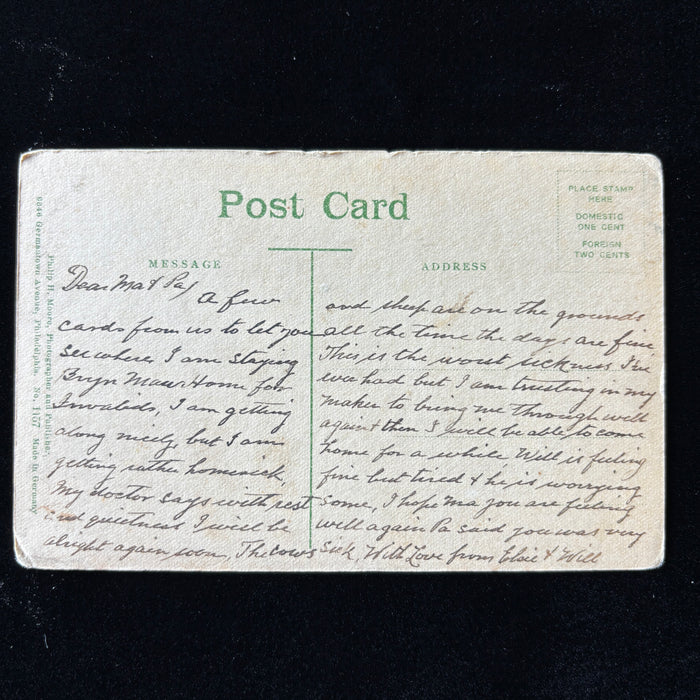 Post Card
PLACE STAMP
HERE
DOMESTIC
ONE CENT
FOREIGN
TWO CENTS
MESSAGE
ADDRESS
Dear Ma & Pa,
A few
cards from us to let you
see where I am staying
Bryn Mawr Home for
Invalids, I am getting
along nicely, but I am
getting rather homesick,
My doctor says with rest
and quietness I will be
alright again soon, The cows
and sheep are on the grounds
all the time the days are fine,
This is the worst sickness I've
ever had but I am trusting in my
maker to bring me through well
again & then I will be able to come
home for a while Will is feeling
fine but tired & he is worrying
some, I hope Ma you are feeling
well again Pa said you was very
sick, With Love from Elsie & Will
Philip H. Moore, Photographer and Publisher,
6846 Germantown Avenue, Philadelphia, No. 1157 Made in Germany